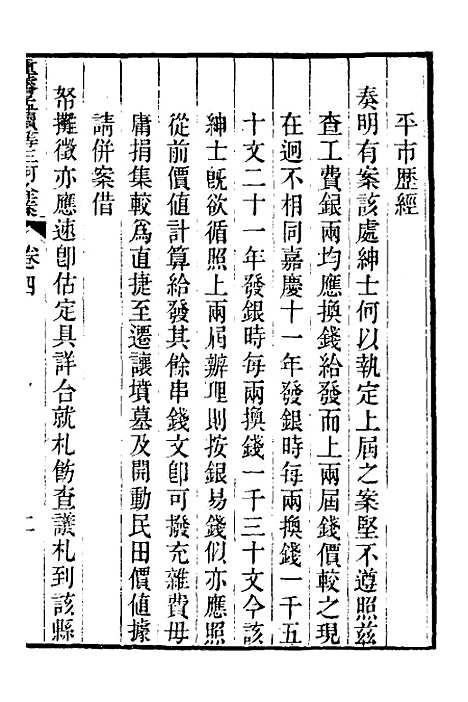 平市歷經
奏明有案該處紳士何以執定上屆之案堅不遵照茲
查工費銀兩均應換錢給發而上兩屆錢價較之現
在迥不相同嘉慶十一年發銀時每兩換錢一千五
十文二十一年發銀時每兩換錢一千三十文今該
紳士旣欲循照上兩屆辦理則按銀易錢似亦應照
從前價值計算給發其餘串錢文卽可撥充雜費毋
庸捐集較爲直捷至遷讓墳墓及開動民田價值據
請併案借
帑攤徵亦應速卽估定具詳台就札飭查議札到該縣
卷四
二